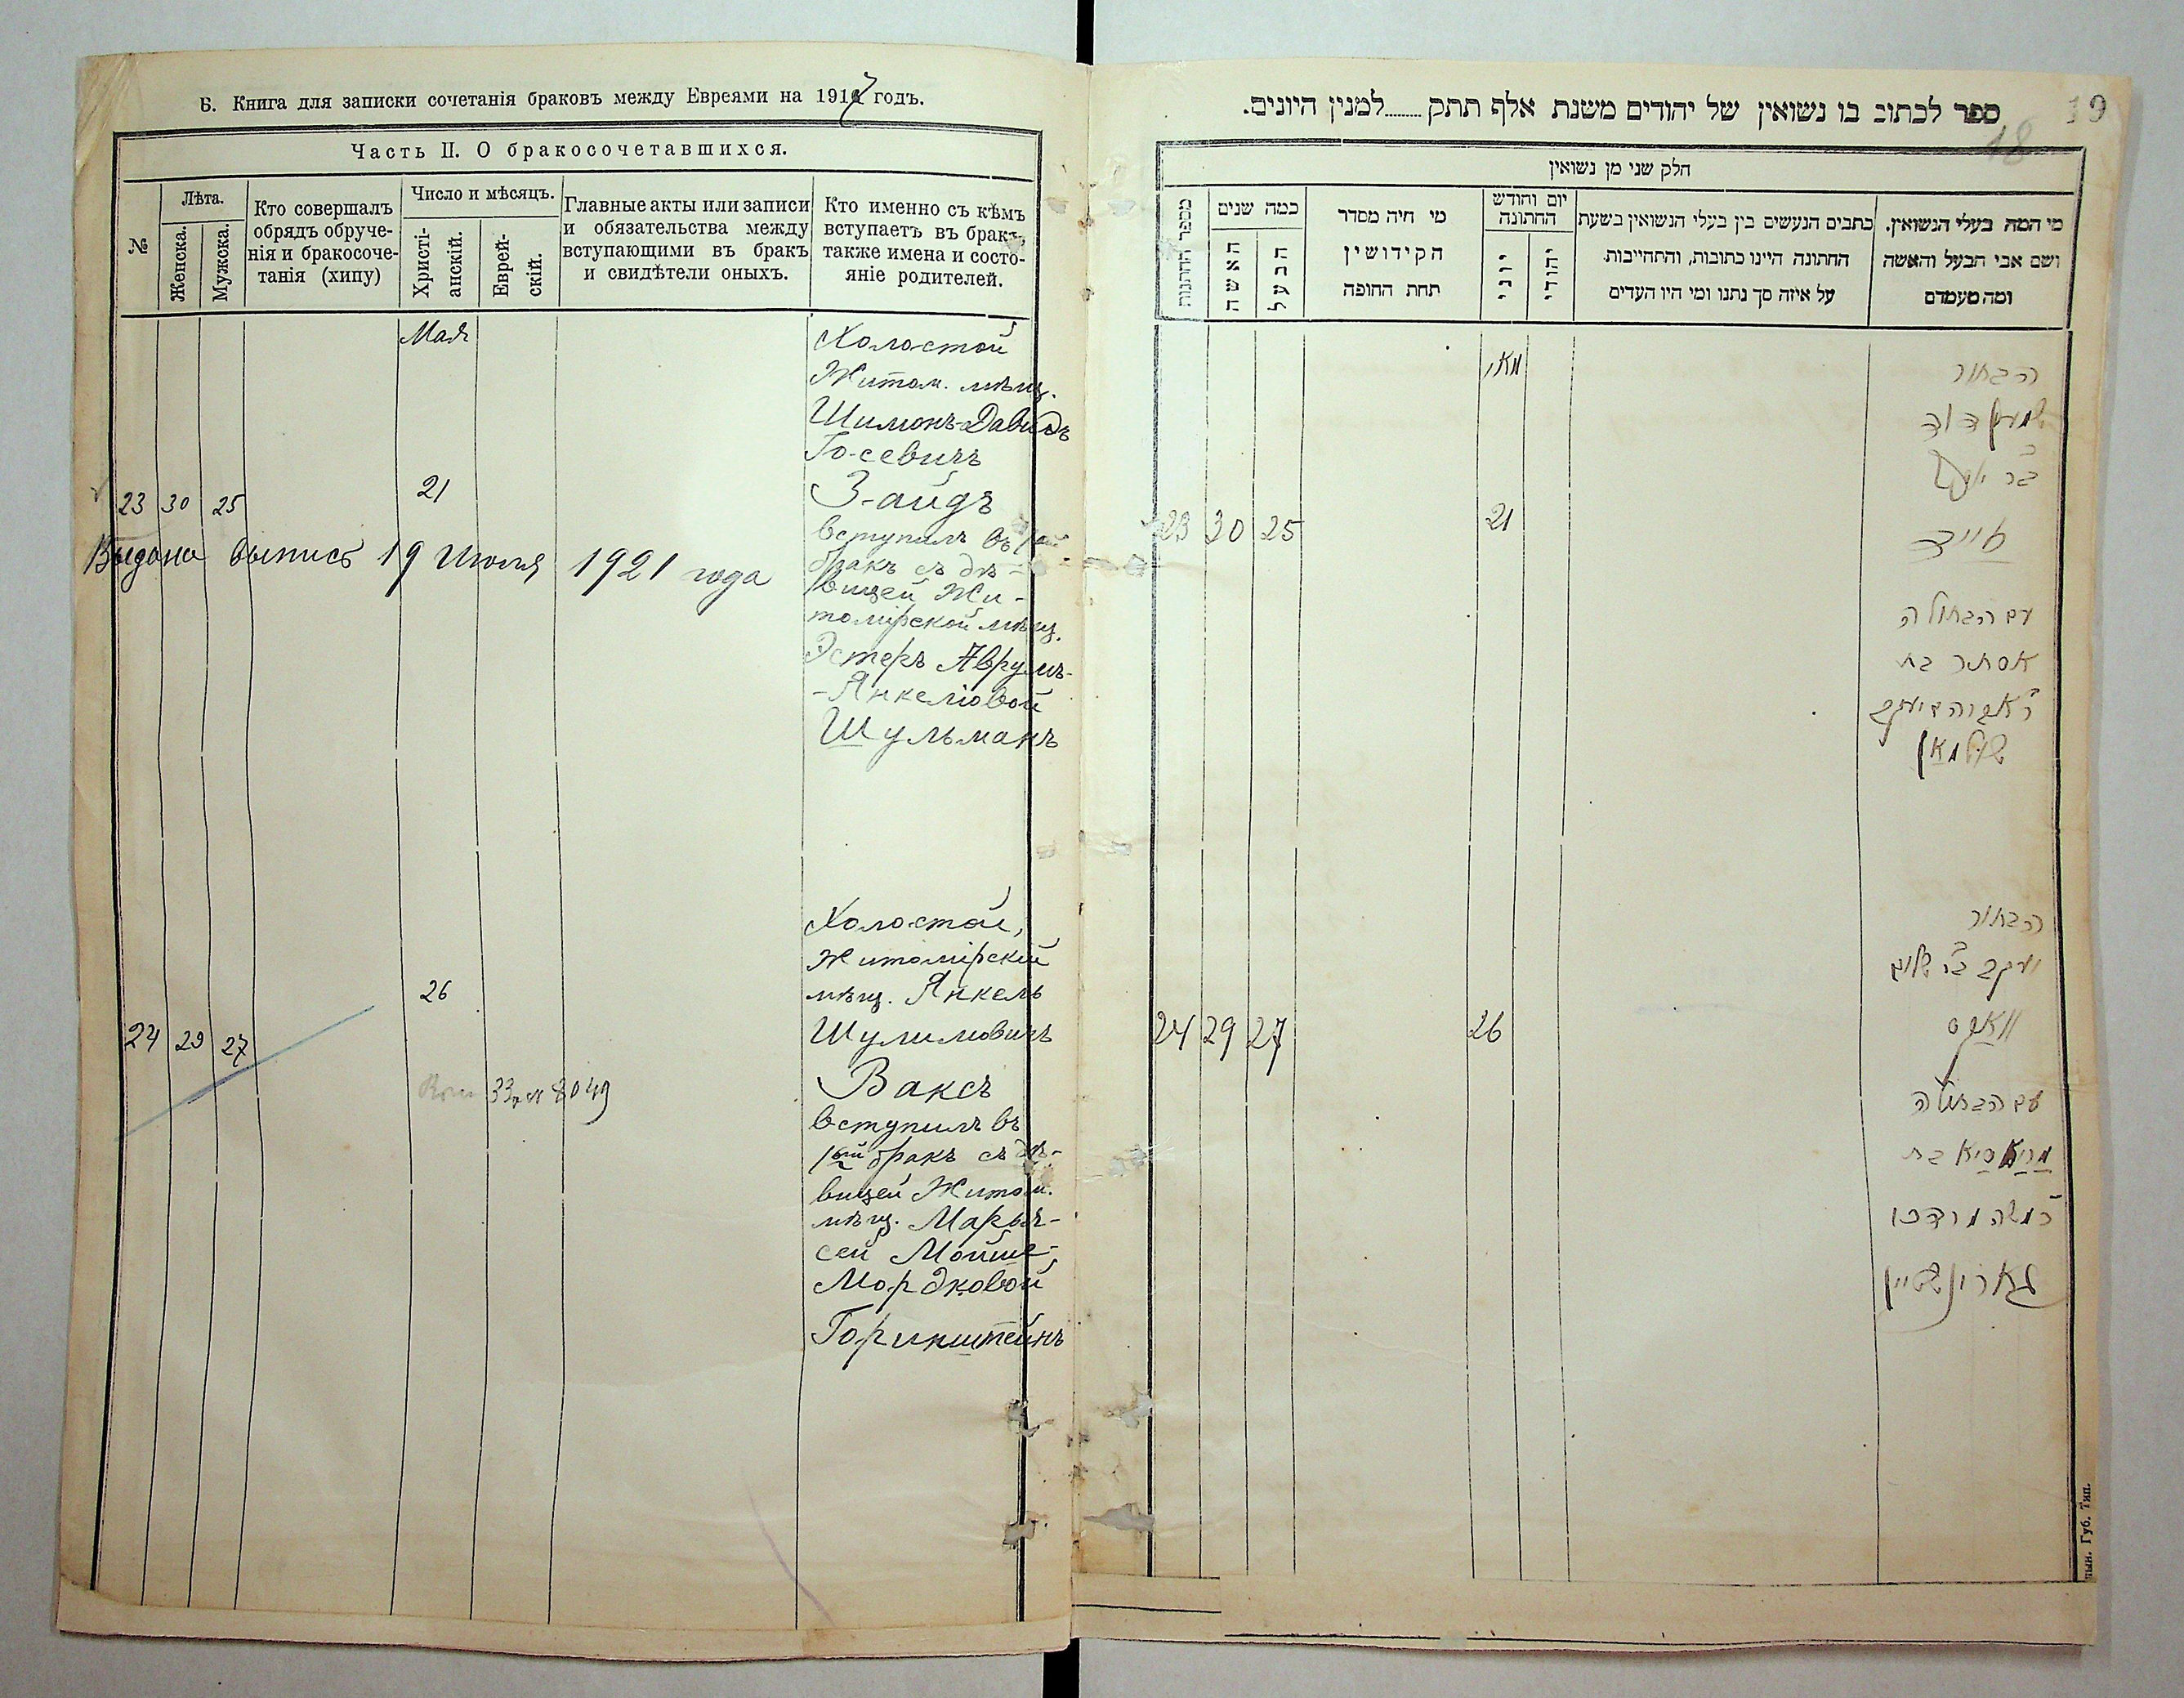 Б. Книга для записки сочетанія браковъ между Евреями на 1917 годъ.
Часть II. О бракосочетавшихся.
№
Лѣта.
Женска.
Мужска.
Кто совершалъ
обрядъ обруче-
нія и бракосоче-
танія (хипу)
Число и мѣсяцъ.
Христі-
анскій.
Еврей-
скій.
Главные акты или записи
и обязательства между
вступающими въ бракъ
и свидѣтели оныхъ.
Кто именно съ кѣмъ
вступаетъ въ бракъ,
также имена и состо-
яніе родителей.
Мая
Холостой
Житом. мѣщ.
Шимонъ-Давидъ
Іо-севичъ
23 30 25 21 З-айдъ
вступилъ въ 1ый
бракъ съ дѣ-
вицей Жи-
томірской мѣщ.
Эстеръ Аврумъ-
-Янкеліовой
Шульманъ
Выдана выпись 19 Июля 1921 года
Холостой,
Житомірскій
26 мѣщ. Янкель
24 29 27 Шулимовичъ
33 8049 Ваксъ
вступилъ въ
1ый бракъ съ дѣ-
вицей Житом.
мѣщ. Марьи-
сей Мойше-
Мордковой
Горинштейнъ
19
18
ספר לכתוב בו נשואין של יהודים משנת אלף תתק........למנין היונים.
חלק שני מן נשואין
מספר החתונות
כמה שנים
האשה
הבעל
מי היה מסדר
הקידושין
תחת החופה
יום והודש
החתונה
יוני
יהודי
כתבים הנעשים בין בעלי הנשואין בשעת
החתונה היינו כתובות, והתחייבות
על איזה סך נתנו ומי היו העדים
מי המה בעלי הנשואין.
ושם אבי הבעל והאשה
ומה מעמדם
מאי
הבחור
שמעון דוד
בר יוסף
23 30 25 21
זייד
עם הבתולה
אסתר בת
ר' אברהם יעקב
שולמאן
הבחור
יעקב בר שלום
24 29 27 26 וואקס
עם הבתולה
מריאסיא בת
ר' משה מרדכי
גארינשטיין
Губ. Тип.